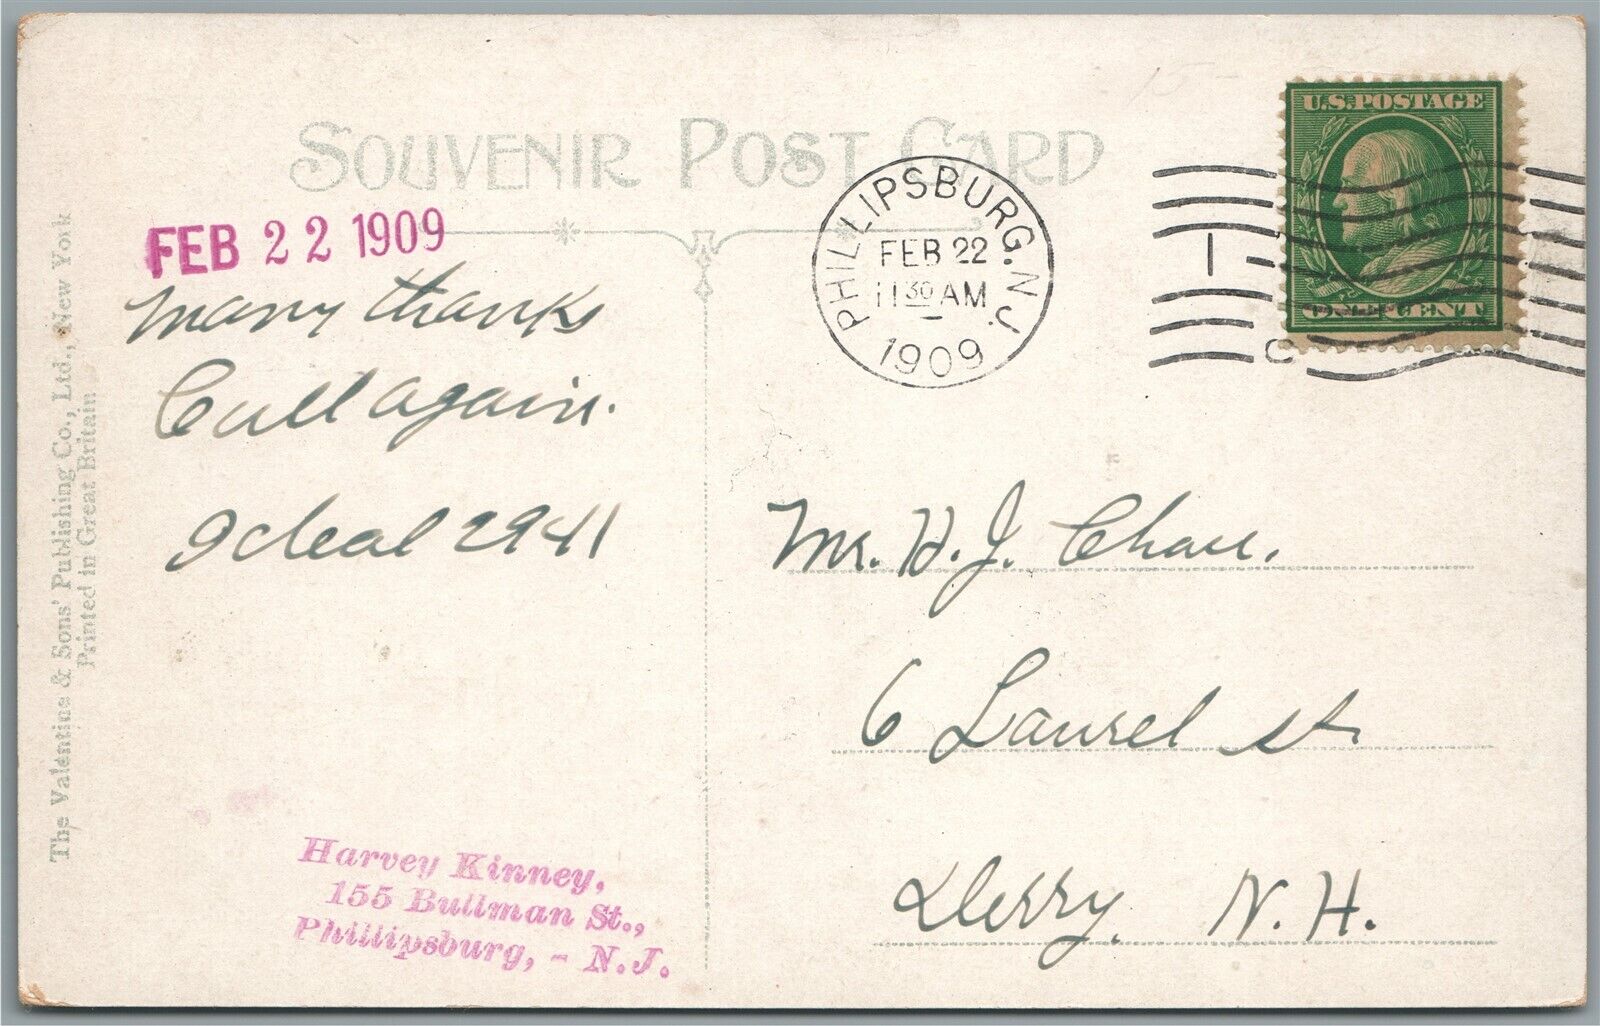 SOUVENIR POST CARD
FEB 22 1909
many thanks
Call again.
Ideal 2941
Harvey Kinney,
155 Bullman St.,
Phillipsburg, - N.J.
The Valentine & Sons' Publishing Co., Ltd., New York
Printed in Great Britain
PHILLIPSBURG. N.J.
FEB 22
11 30 AM
1909
1
U.S. POSTAGE
ONE CENT
15-
Mr. H. J. Chase.
6 Laurel st.
Derry, N.H.